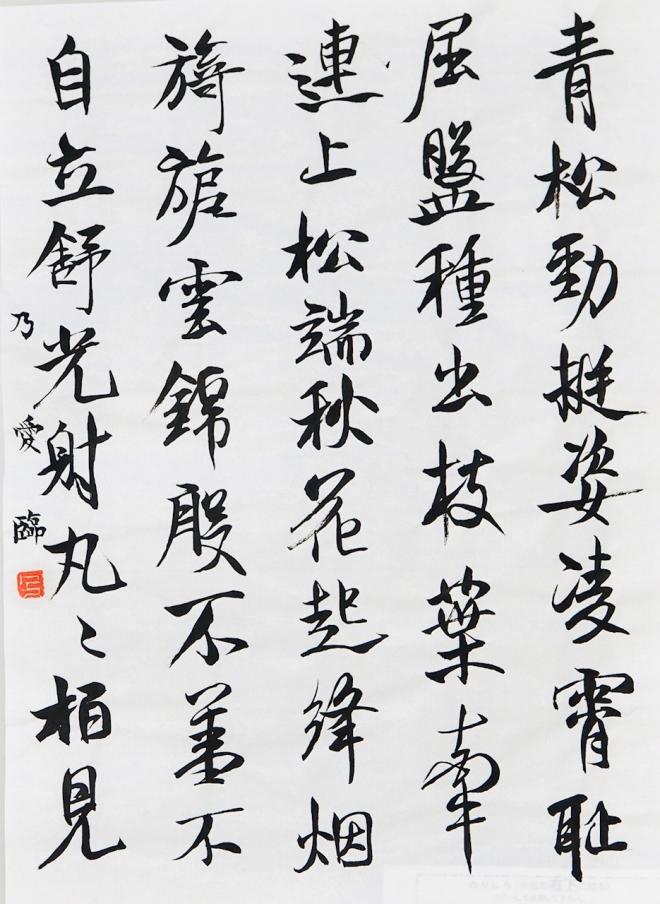 青松勁挺姿凌霄耻
屈盤種出枝葉牽
連上松端秋花起絳烟
旖旎雲錦殷不羞不
自立舒光射丸〻柏見
乃愛臨